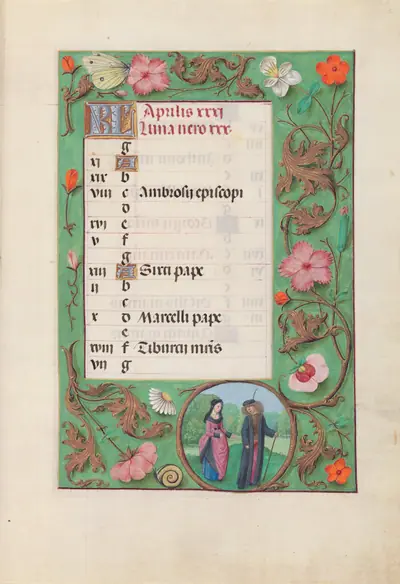 KL Aprilis xxxj
Luna vero xxx.
g
xi A
xix b
viii c Ambrosij episcopi
d
xvi e
v f
g
xiii A Sixti pape
ii b
c
x d Marcelli pape
e
xviii f Tiburcij mris
vii g